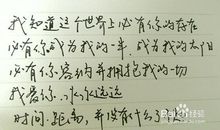 我知道这个世界上必有你的存在
必有你成为我的一半，成为我的太阳
必有你容纳并拥抱我的一切
我爱你，永永远远
时间、距离，并没有什么
Bai 经验